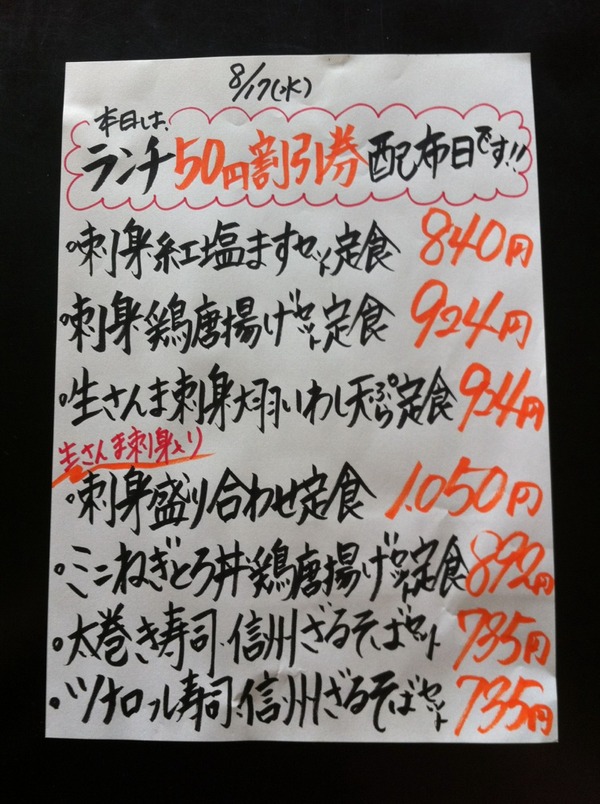 8/17(水)
本日は、
ランチ50円割引券配布日です!!
•刺身紅塩ますセット定食 840円
•刺身鶏唐揚げセット定食 924円
•生さんま刺身大羽いわし天ぷら定食 924円
生さんま刺身入り
•刺身盛り合わせ定食 1.050円
•ミニねぎとろ丼鶏唐揚げセット定食 892円
•太巻き寿司.信州ざるそばセット 735円
•ツナロール寿司.信州ざるそばセット 735円